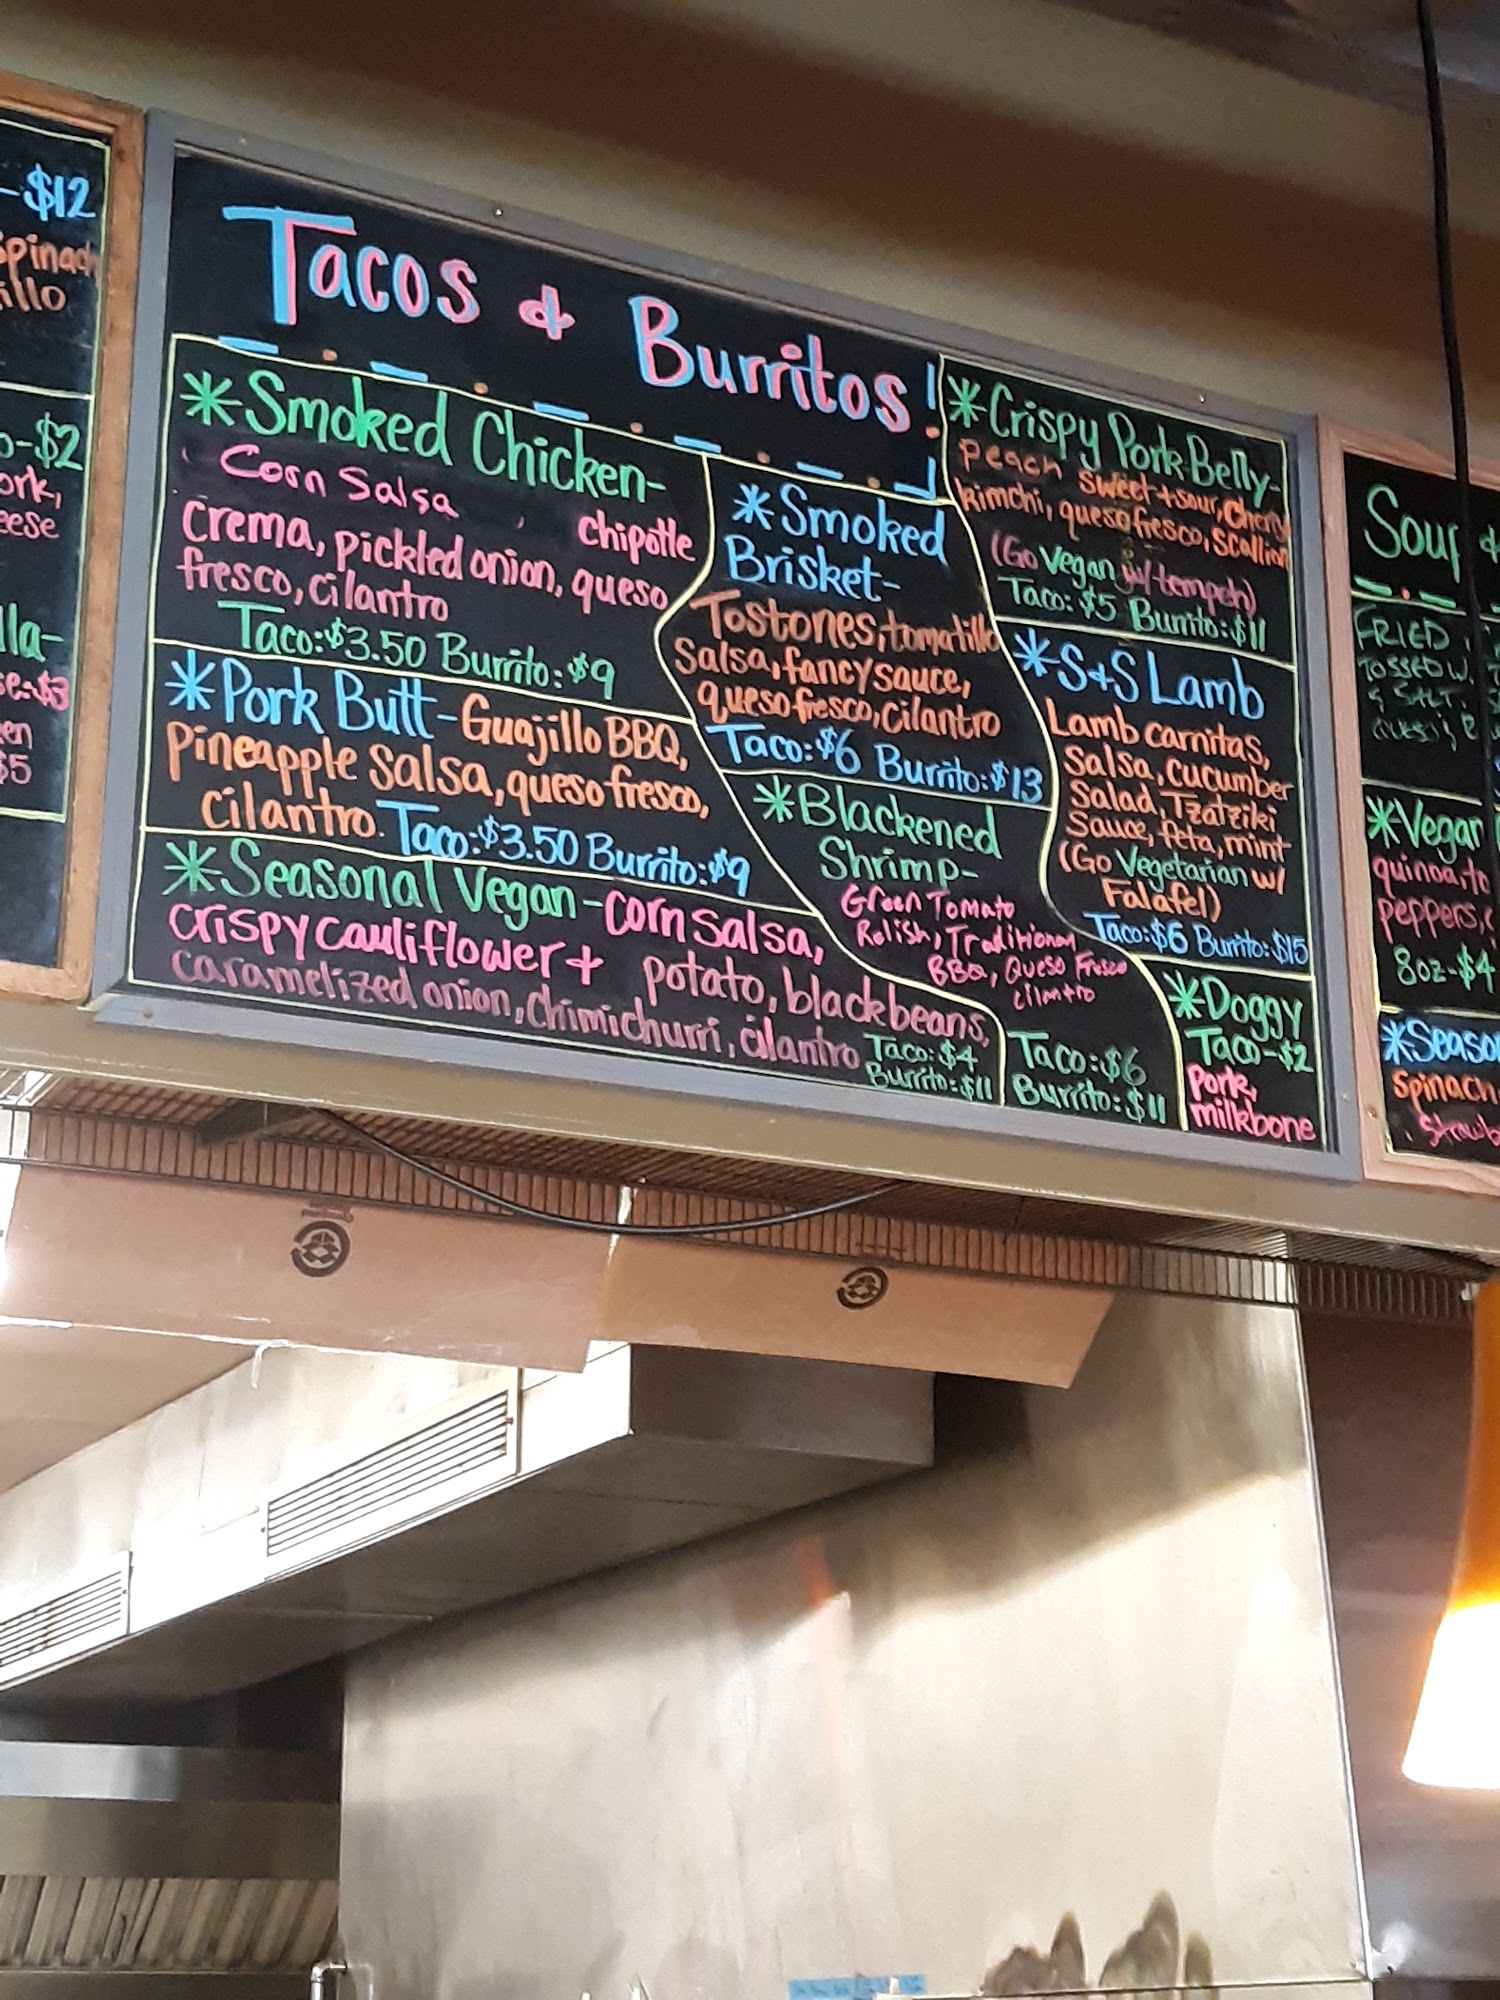 -$12
spinach
illo
o-$2
ork,
eese
lla-
se-$3
en
$5
Tacos & Burritos!
*Smoked Chicken-
Corn Salsa, chipotle
crema, pickled onion, queso
fresco, cilantro
Taco:$3.50 Burrito:$9
*Pork Butt-Guajillo BBQ,
pineapple salsa, queso fresco,
cilantro. Taco:$3.50 Burrito:$9
*Seasonal Vegan-corn salsa,
crispy cauliflower + potato, black beans,
caramelized onion, chimichurri, cilantro
Taco:$4
Burrito:$11
*Smoked
Brisket-
Tostones, tomatillo
salsa, fancy sauce,
queso fresco, cilantro
Taco:$6 Burrito:$13
*Blackened
Shrimp-
Green Tomato
Relish, Traditional
BBQ, Queso Fresco
cilantro
Taco:$6
Burrito:$11
*Crispy Pork Belly-
peach sweet+sour, cherry
kimchi, queso fresco, scallion
(Go Vegan w/tempeh)
Taco:$5 Burrito:$11
*S+S Lamb
Lamb carnitas,
Salsa, cucumber
Salad, Tzatziki
Sauce, feta, mint
(Go Vegetarian w/
Falafel)
Taco:$6 Burrito:$15
*Doggy
Taco-$2
pork,
milkbone
Soup &
FRIED
TOSSED W.
& SALT.
*Vegan
quinoa, to
peppers,
8oz-$4
*Season
Spinach